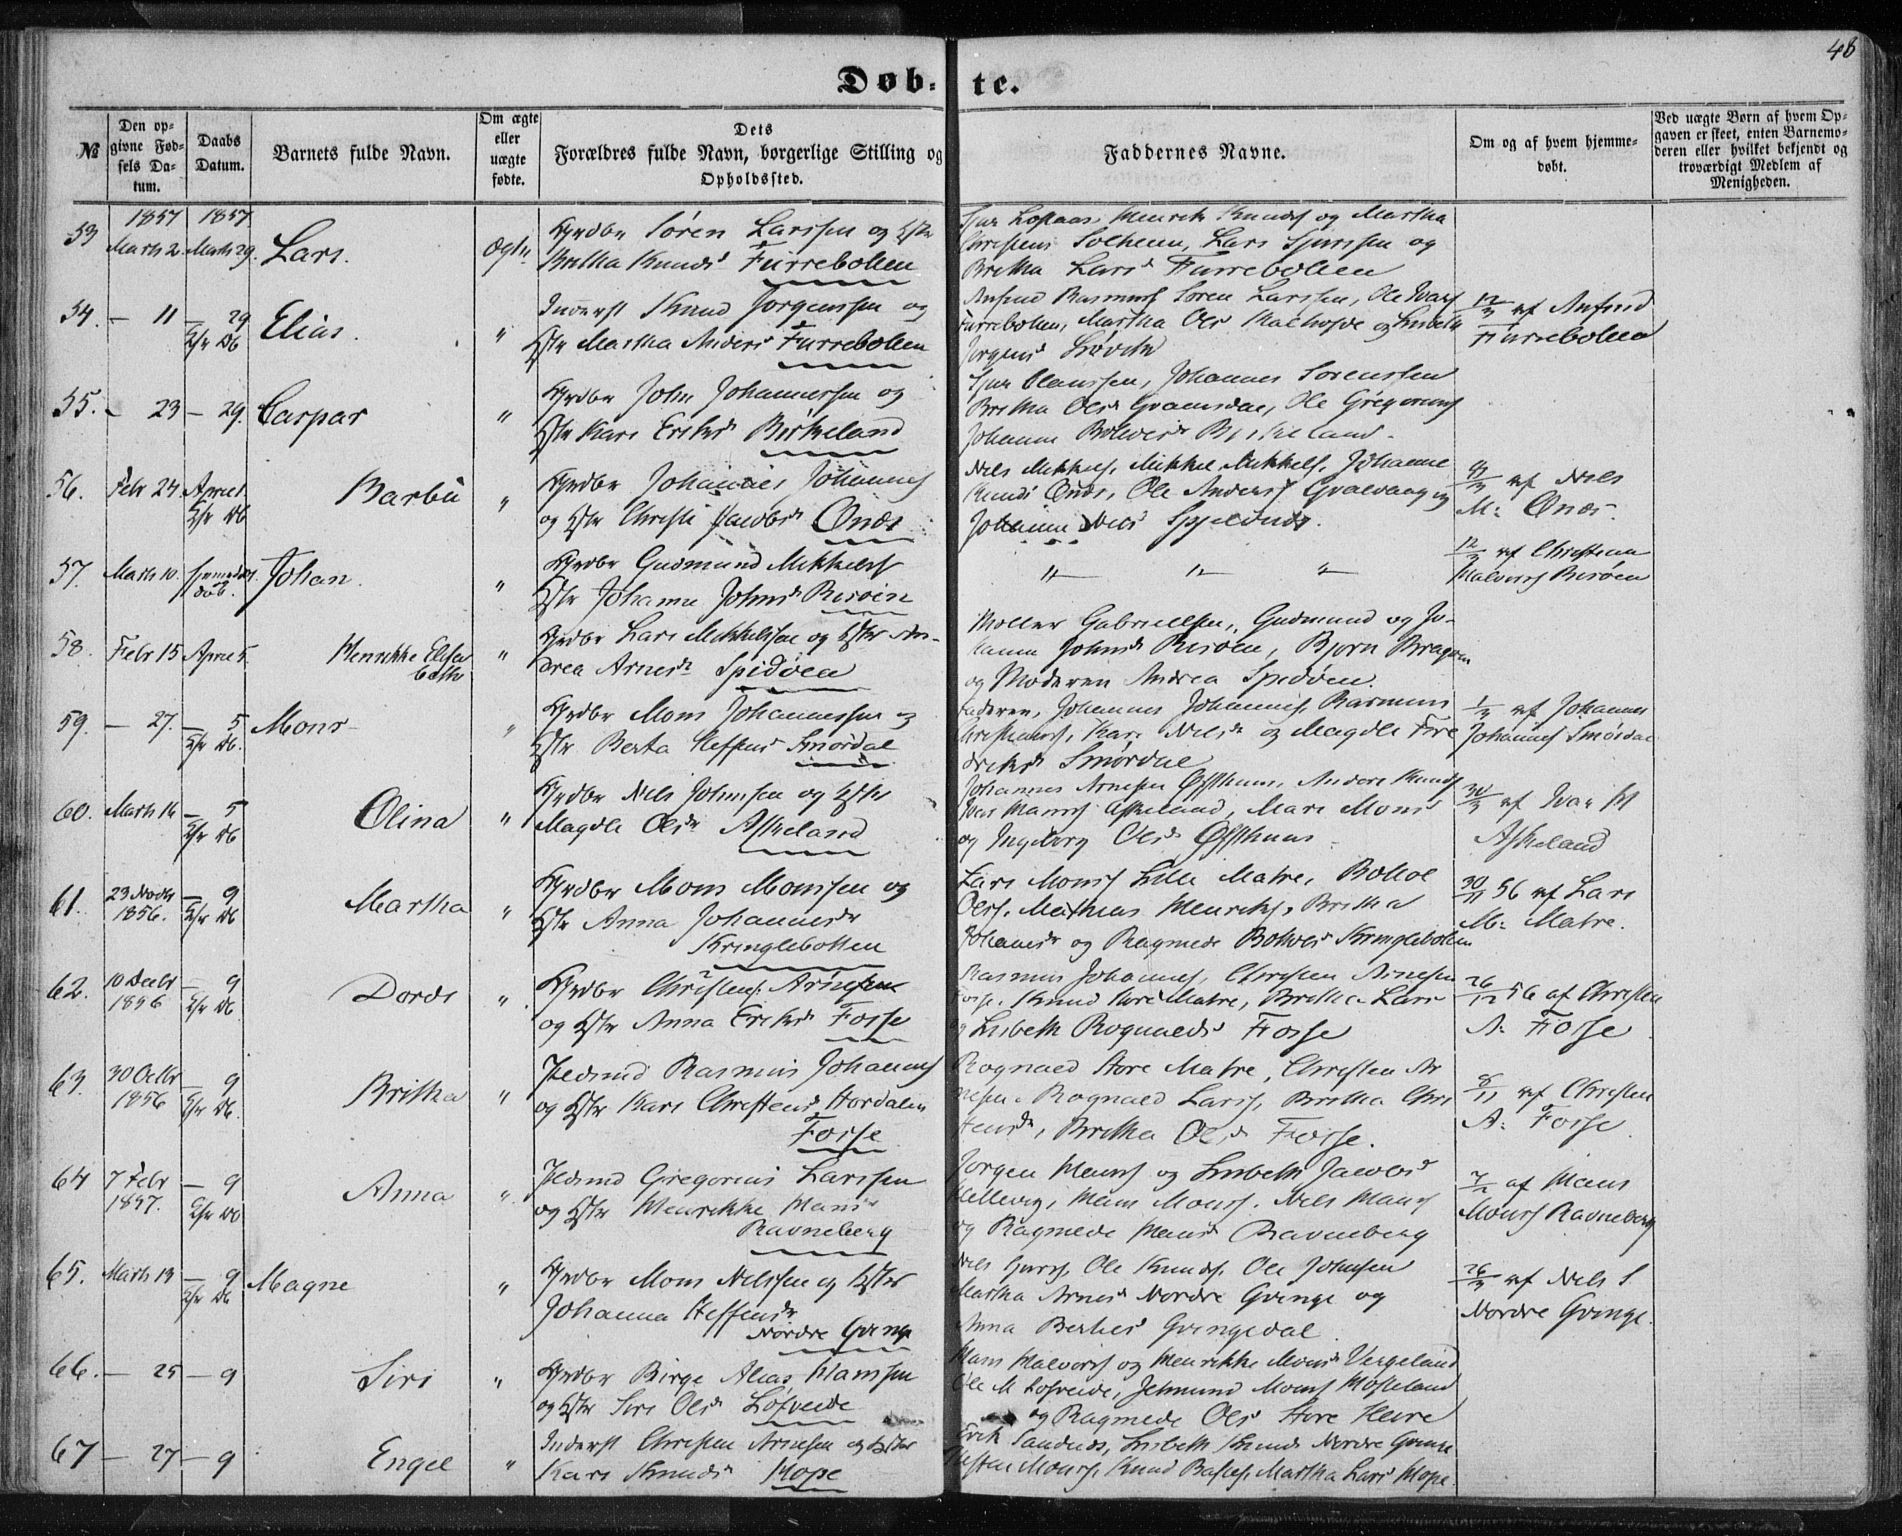 48
Døb-te.
№
Den op-
givne Fød-
sels Da-
tum.
Daabs
Datum.
Barnets fulde Navn.
Om ægte
eller
uægte
fødte.
Dets
Forældres fulde Navn, borgerlige Stilling og
Opholdssted.
Faddernes Navne.
Om og af hvem hjemme-
døbt.
Ved uægte Børn af hvem Op-
gaven er skeet, enten Barnemo-
deren eller hvilket bekjendt og
troværdigt Medlem af
Menigheden.
1857 1857
53 Marts 2. Marts 29. Lars. Ægte
Grdbr Søren Larssen og Hstr
Britha Knuds Furrebotten
Henrik Knuds og Martha
Solheim, Lars Sjurssen og
Britha Lars Furrebotten
54. — 11 — 29 Elias "
Inderst Knud Jørgenssen og
Hstr Martha Anders Furrebotten
Anfind Rasmus Søren Larssen, Ole Ivars
Furrebotten, Martha Ols
Jørgens
af Anfind
Furrebotten
55. — 23 — 29. Caspar "
Grdbr John Johannessen og
Hstr Kari Eriks Birkeland
Sjur Johannes Sørenssen
Britha Ols Ole Gregorius
Johanne Birkeland
56. Febr 24 April Barbu "
Grdbr Johannes Johannes
og Hstr Christi Jacobs Qnæs
Nels Mikkels, Mikkel Mikkels, Johanne
Knuds Qnæs, Ole Anders og
Johanne Nels
af Nels
M: Qnæs.
57. Marts 10. hjemme døb. Johan "
Grdbr Gudmund Mikkels
Hstr Johanne Johns Risøen
" " "
12/3 af Christian
Halvors Risøen
58. Febr 15 April 5 Henrikke Elisa
beth "
Grdbr Lars Mikkelsen og Hstr An-
drea Arnes Spidøen
Møller Gabrielsen, Gudmund og Jo-
hanne Johns Risøen, Bjørn
og Moderen Andrea Spidøen.
59. — 27. — 5 Mons "
Grdbr Mons Johannessen og
Hstr Berta Steffens Smørdal
Faderen, Johannes Johannes, Rasmus
Christens, Kari Nels og Magdle Fre
driks Smørdal
1/3 af Johannes
Johannes Smørdal
60. Marts 16 — 5 Olina "
Grdbr Nels Johnsen og Hstr
Magdle Ols Askeland
Johannes Arnesen Anders Knuds
Ivar Hans Askeland, Mari Mons
og Ingeborg Ols
30/3 af Ivar H
Askeland
61. 23 Novbr
1856. — 9 Martha "
Grdbr Mons Monsen og
Hstr Anna Johannes
Kringlebotten
Lars Mons Lille Matre, Botolv
Ols, Mathias Henriks, Britha
Johannes og Ragnede Botolvs Kringlebotten
30/11 56 af Lars
M: Matre.
62. 10 Decbr
1856 — 9 Dorde "
Grdbr Christen Arnesen
og Hstr Anna Eriks Fosse
Rasmus Johannes, Christen Arnesen
Fosse, Knud Store Matre, Britha Lars
og Lisbeth Rognalds Fosse
26/12 56 af Christen
A: Fosse
63. 30 Octbr
1856 — 9 Britha "
Pedsmd Rasmus Johannes
og Hstr Kari Christens Hordalen
Fosse
Rognald Store Matre, Christen Ar
nesen, Rognald Lars, Britha Chri
stens, Britha Ols Fosse.
8/11 af Christen
A: Fosse
64 7 Febr
1857. — 9 Anna "
Gregorius Larssen
og Hstr Henrikke Hans
Ravneberg
Jørgen Hans og Lisbeth Jacobs
Hellevig, Hans Mons, Nels Hans
og Ragnede Hans Ravneberg
7/2 af Hans
Mons Ravneberg
65. Marts 13 — 9 Magne "
Grdbr Mons Nelssen og Hstr
Johanna Steffens
Nordre Gvinge
Nels Sjurs, Ole Knuds, Ole Johnsen
Martha Arnes Nordre Gvinge og
Anna Gvingedal
26/3 af Nels S
Nordre Gvinge.
66. — 25 — 9 Siri "
Grdbr Birge Alias Hansen
og Hstr Siri Ols Løfveide
Hans Halvors og Henrikke Mons Vergeland
Ole M Løfveide, Jetmund Mons
og Ragnede Ols Store
67 — 27 — 9 Engel "
Inderst Christen Arnesen og Hstr
Kari Knuds Hope
Erik Sandnæs, Lisbeth Knuds Nordre
Mons, Knud Martha Lars Hope